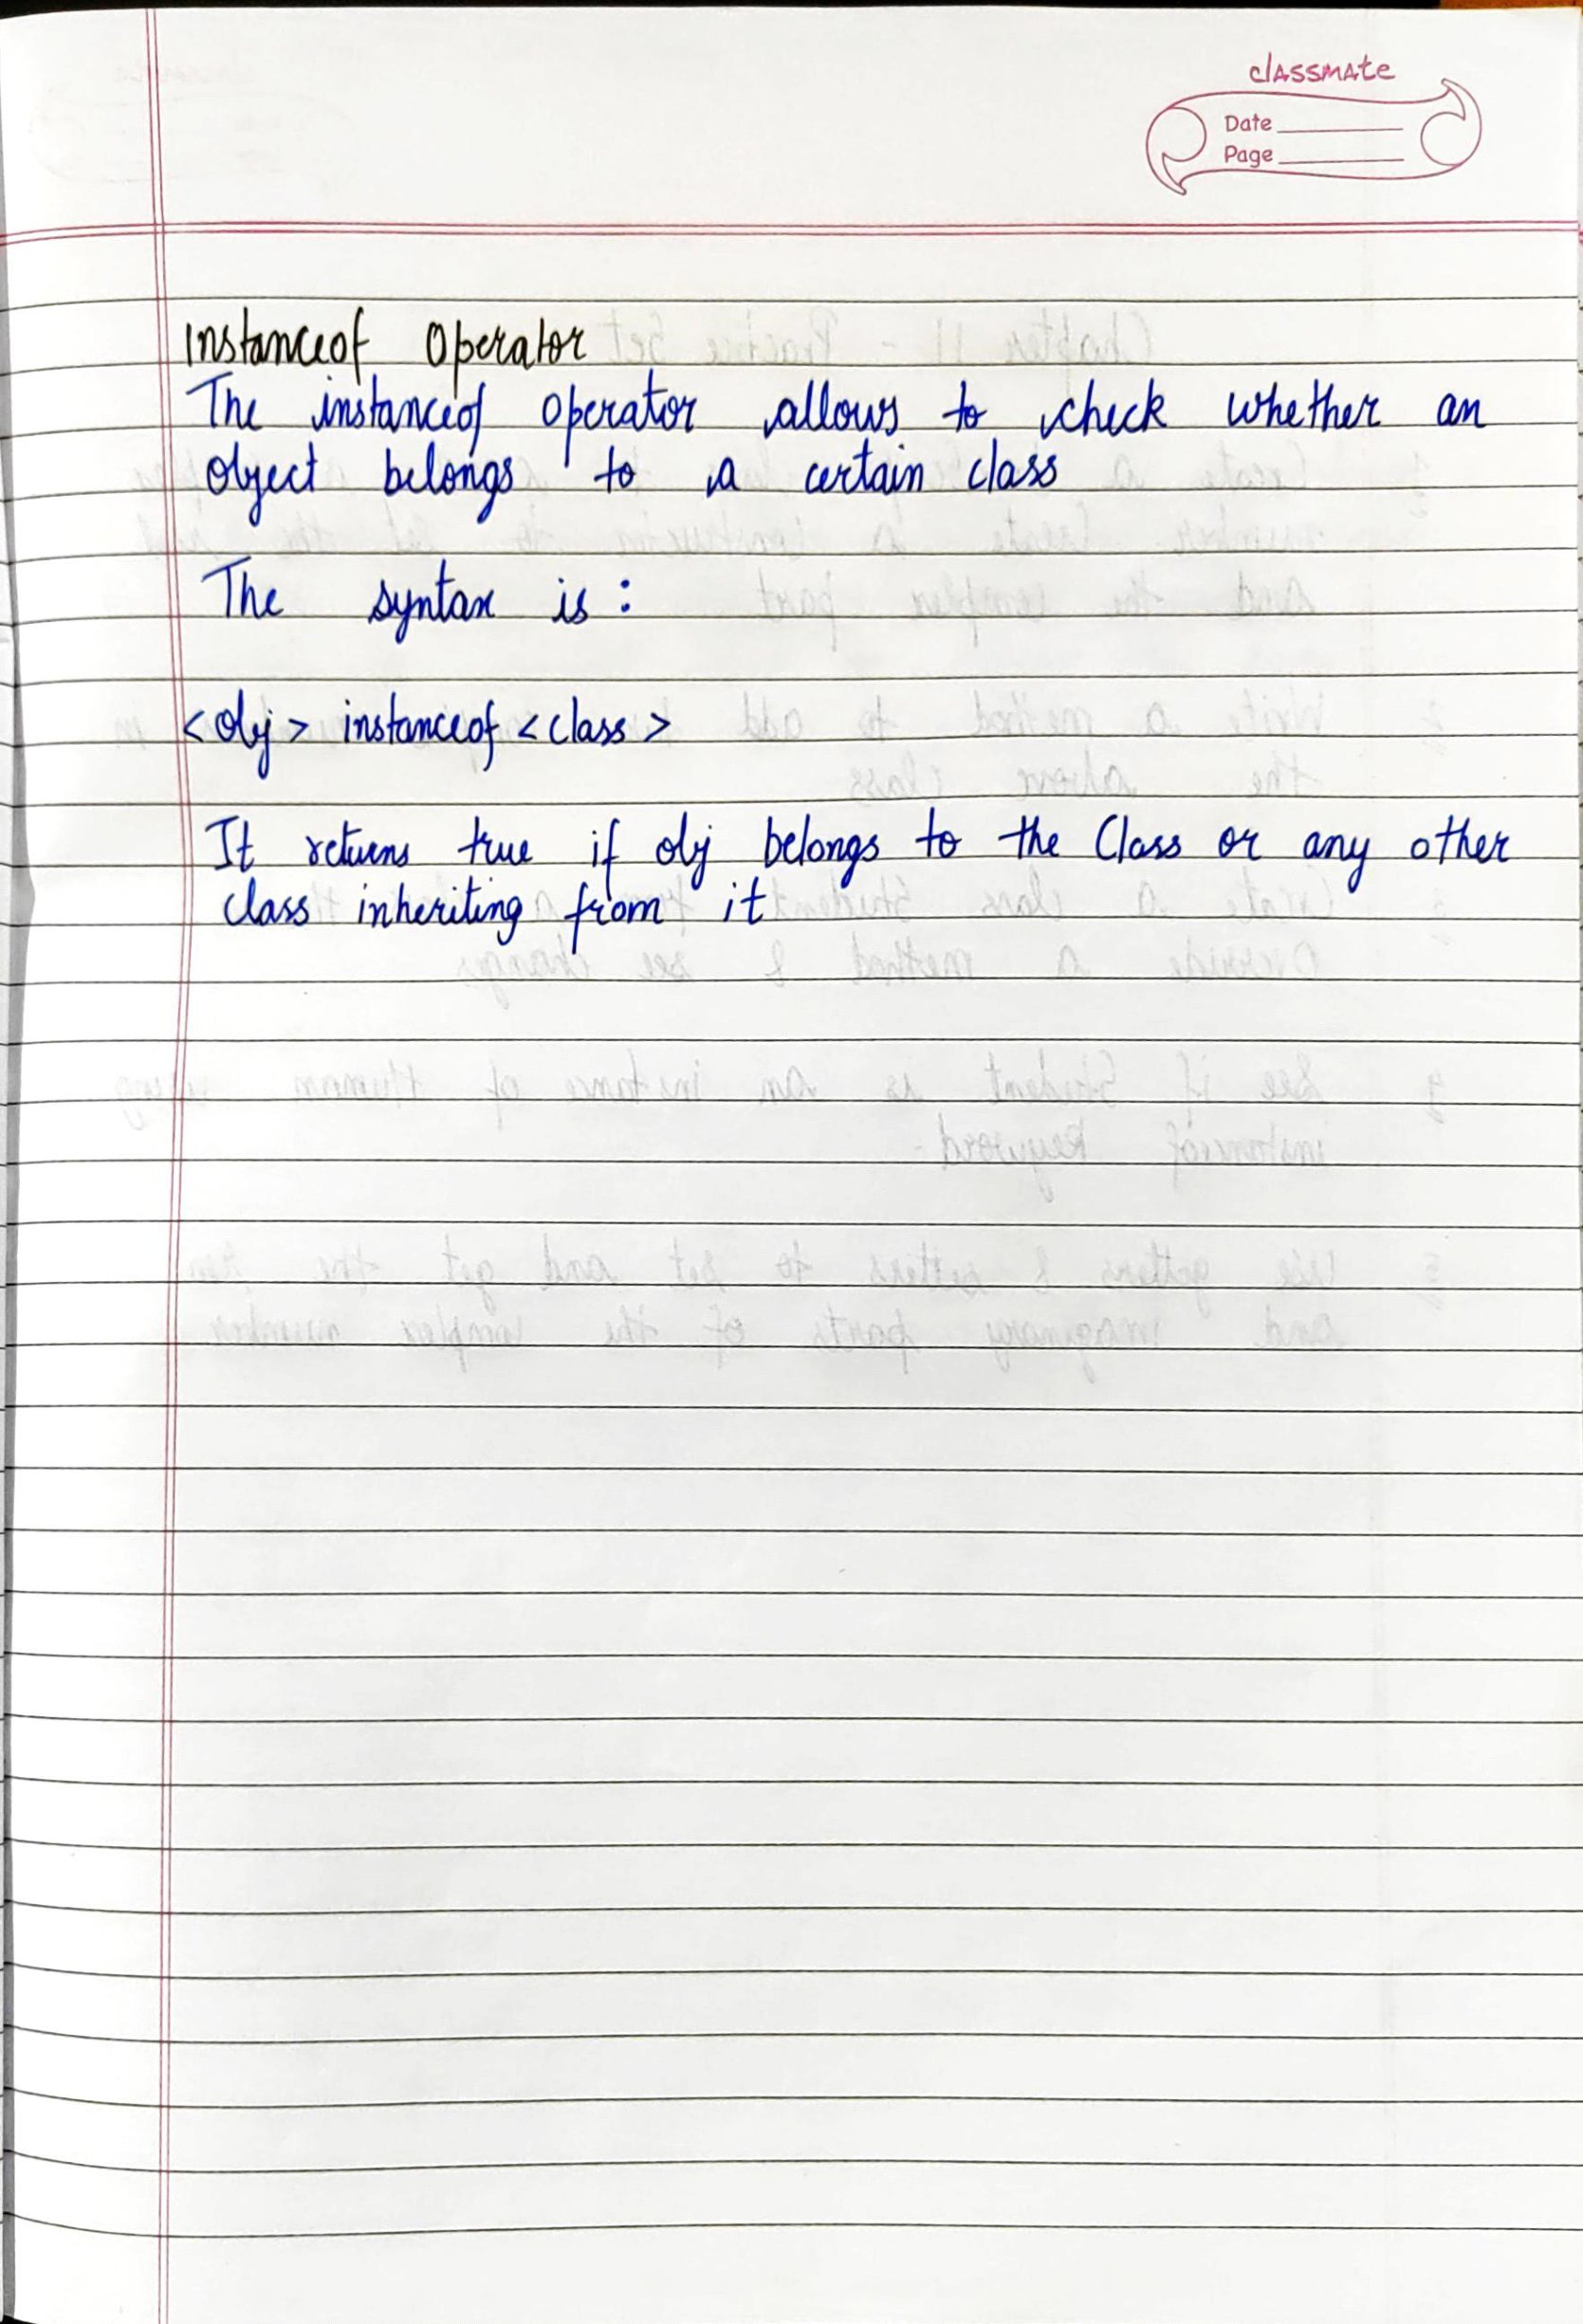 classmate
Date
Page
Instanceof Operator
The instanceof operator allows to check whether an
object belongs to a certain class
The syntax is :
<obj> instanceof <class>
It returns true if obj belongs to the Class or any other
class inheriting from it